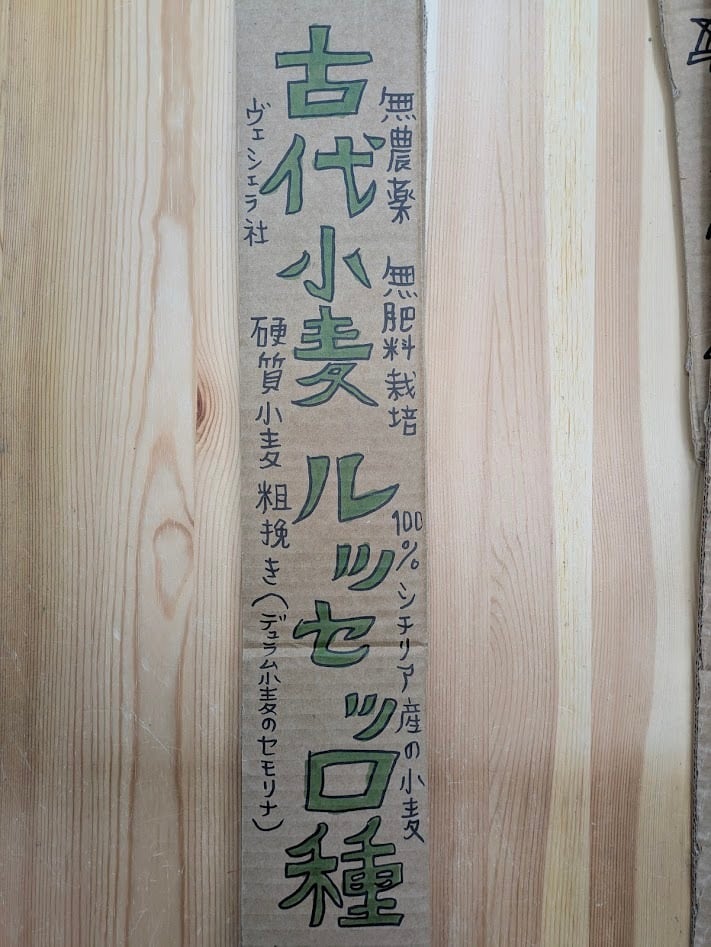 無農薬 無肥料栽培 100% シチリア産の小麦
古代小麦 ルッセッロ種
ヴェシェラ社 硬質小麦 粗挽き(デュラム小麦のセモリナ)